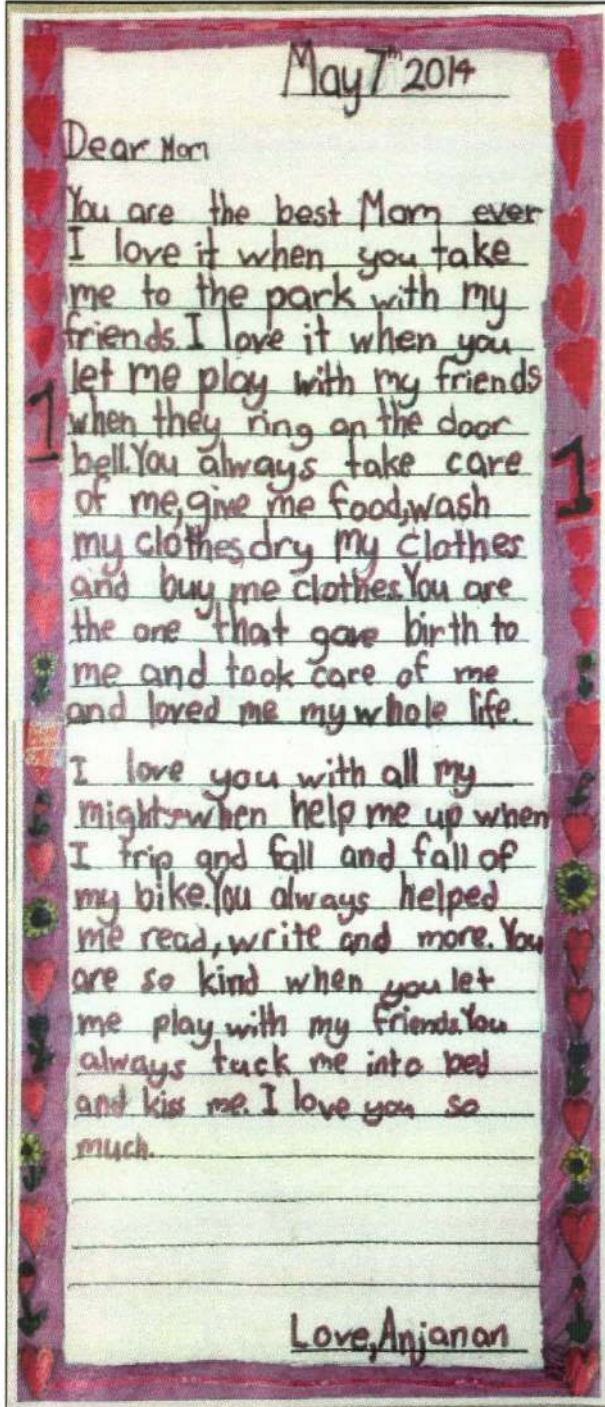 May 7th 2014
Dear Mom
You are the best Mom ever
I love it when you take
me to the park with my
friends. I love it when you
let me play with my friends
when they ring on the door
bell. You always take care
of me, give me food, wash
my clothes, dry my clothes
and buy me clothes. You are
the one that gave birth to
me and took care of me
and loved me my whole life.
I love you with all my
might when help me up when
I trip and fall and fall of
my bike. You always helped
me read, write and more. You
are so kind when you let
me play with my friends. You
always tuck me into bed
and kiss me. I love you so
much.
Love, Anjanan
1
1